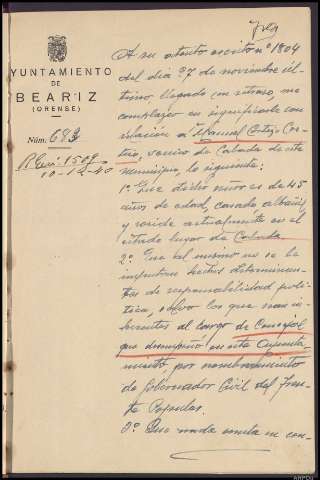 AYUNTAMIENTO
DE
BEARIZ
(ORENSE)
Núm. 683
1509
10-12-40
A su atento escrito nº 1804
del dia 27 de noviembre úl-
timo, llegado con retraso, me
complazco en significarle con
relación a Manuel Cortizo Cor-
tizo, vecino de este
municipio, lo siguiente:
1º. Que dicho señor es de 45
años de edad, casado, albañil
y reside actualmente en el
citado lugar de
2º. Que al mismo no se le
imputan hechos determinan-
tes de responsabilidad polí-
tica, salvo los que sean in-
herentes al cargo de Concejal
que desempeñó en este Ayunta-
miento, por nombramiento
de Gobernador Civil del Fren-
te Popular.
3º. Que nada consta en con-